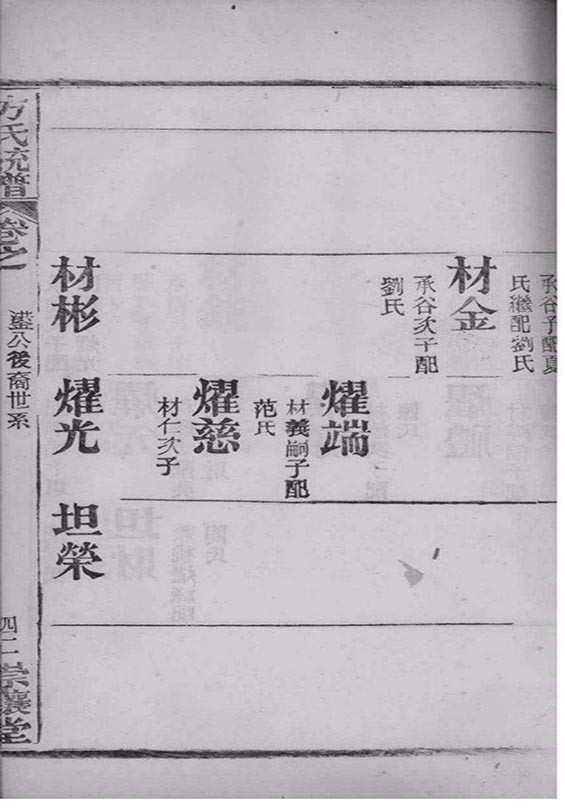 承谷子配夏
氏繼配劉氏
材金
承谷次子配
劉氏
耀端
材義嗣子配
范氏
耀慈
材仁次子
材彬
耀光
坦榮
方氏統譜
卷之
公後裔世系
四二
崇讓堂